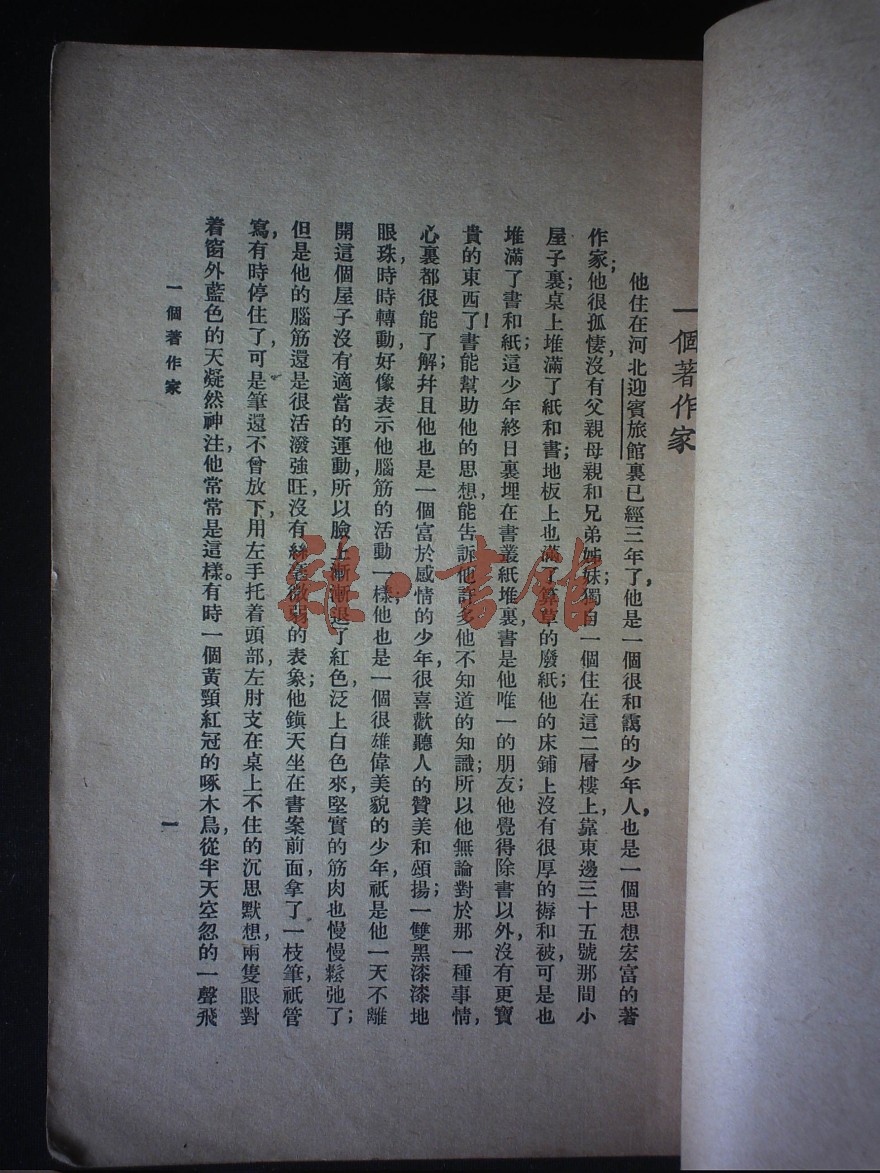 一個著作家
他住在河北迎賓旅館裏已經三年了,他是一個很和靄的少年人,也是一個思想宏富的著
作家;他很孤悽沒有父親母親和兄弟姊妹;獨自一個住在這二層樓上,靠東邊三十五號那間小
屋子裏;桌上堆滿了紙和書;地板上也滿了算草的廢紙;他的床鋪上沒有很厚的褥和被,可是也
堆滿了書和紙;這少年終日裏埋在書叢紙堆裏,書是他唯一的朋友;他覺得除書以外,沒有更寶
貴的東西了!書能幫助他的思想,能告訴他許多他不知道的知識;所以他無論對於那一種事情,
心裏都很能了解;幷且他也是一個富於感情的少年,很喜歡聽人的贊美和頌揚;一雙黑漆漆地
眼珠,時時轉動,好像表示他腦筋的活動一樣;他也是一個很雄偉美貌的少年,祇是他一天不離
開這個屋子沒有適當的運動,所以臉上漸漸退了紅色,泛上白色來,堅實的筋肉也慢慢鬆弛了;
但是他的腦筋還是很活潑強旺,沒有絲毫微弱的表象;他鎮天坐在書案前面,拿了一枝筆,祇管
寫,有時停住了,可是筆還不曾放下,用左手托着頭部,左肘支在桌上不住的沉思默想,兩隻眼對
着窗外藍色的天凝然神注,他常常是這樣。有時一個黃頸紅冠的啄木鳥,從半天空忽的一聲飛
一個著作家
一
雜·書館